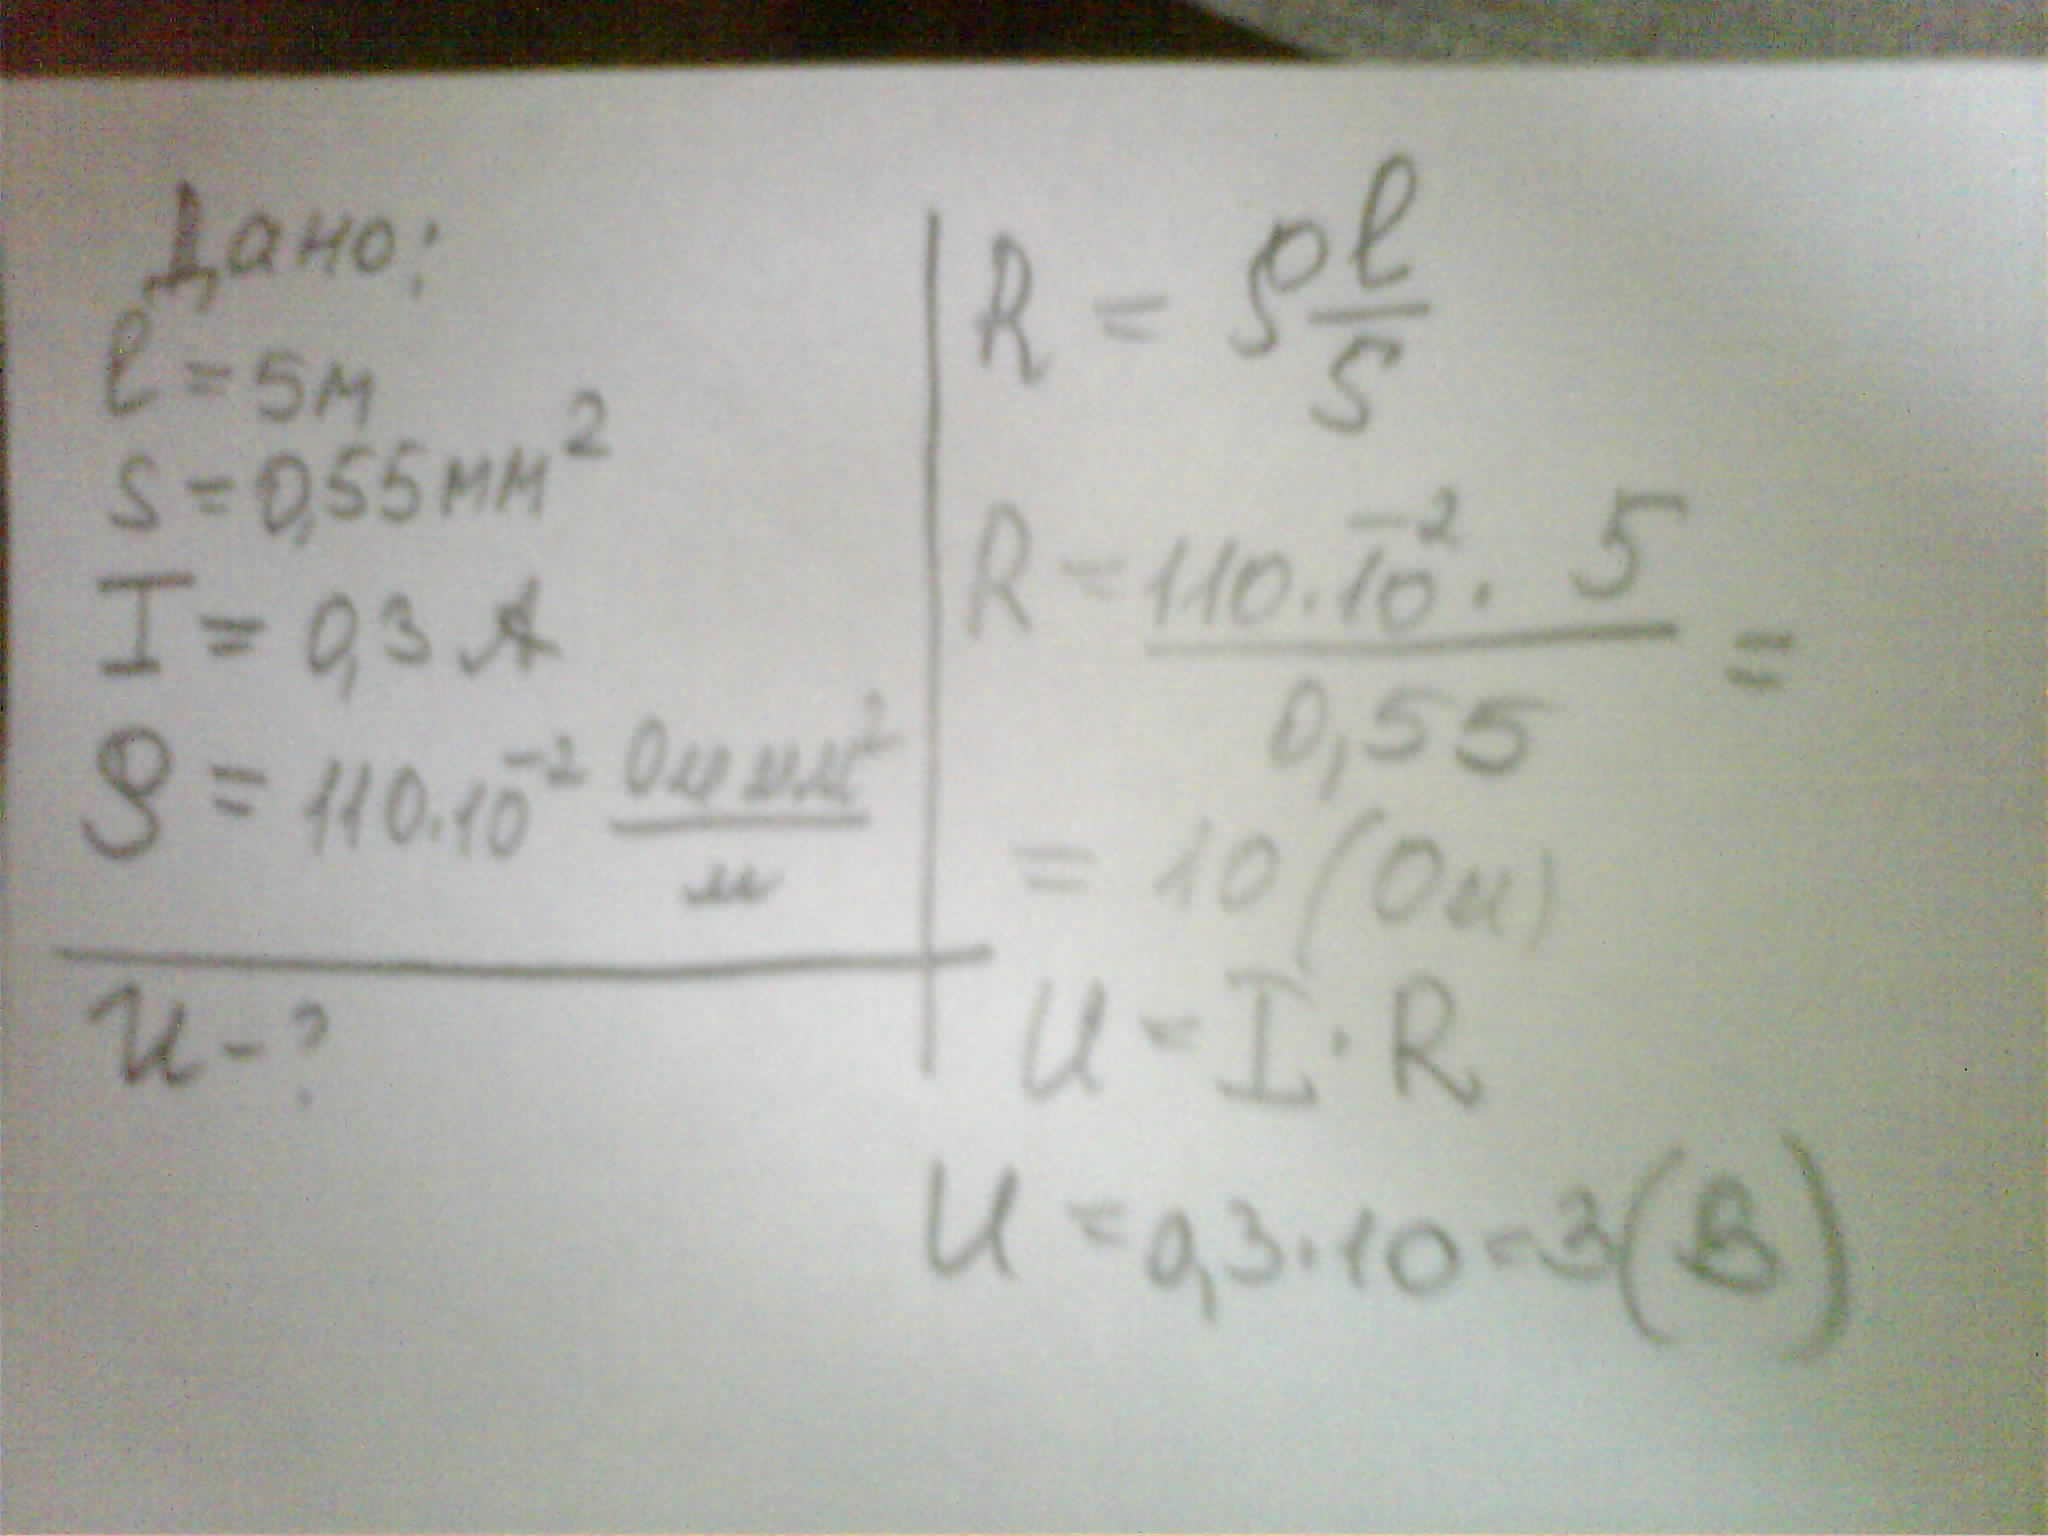 Дано:
l = 5м
S = 0,55мм²
I = 0,3 А
ρ = 110·10⁻² Ом мм²/м
U - ?
R = ρ l/S
R = 110·10⁻² · 5 / 0,55 =
= 10 (Ом)
U = I · R
U = 0,3·10 = 3 (В)